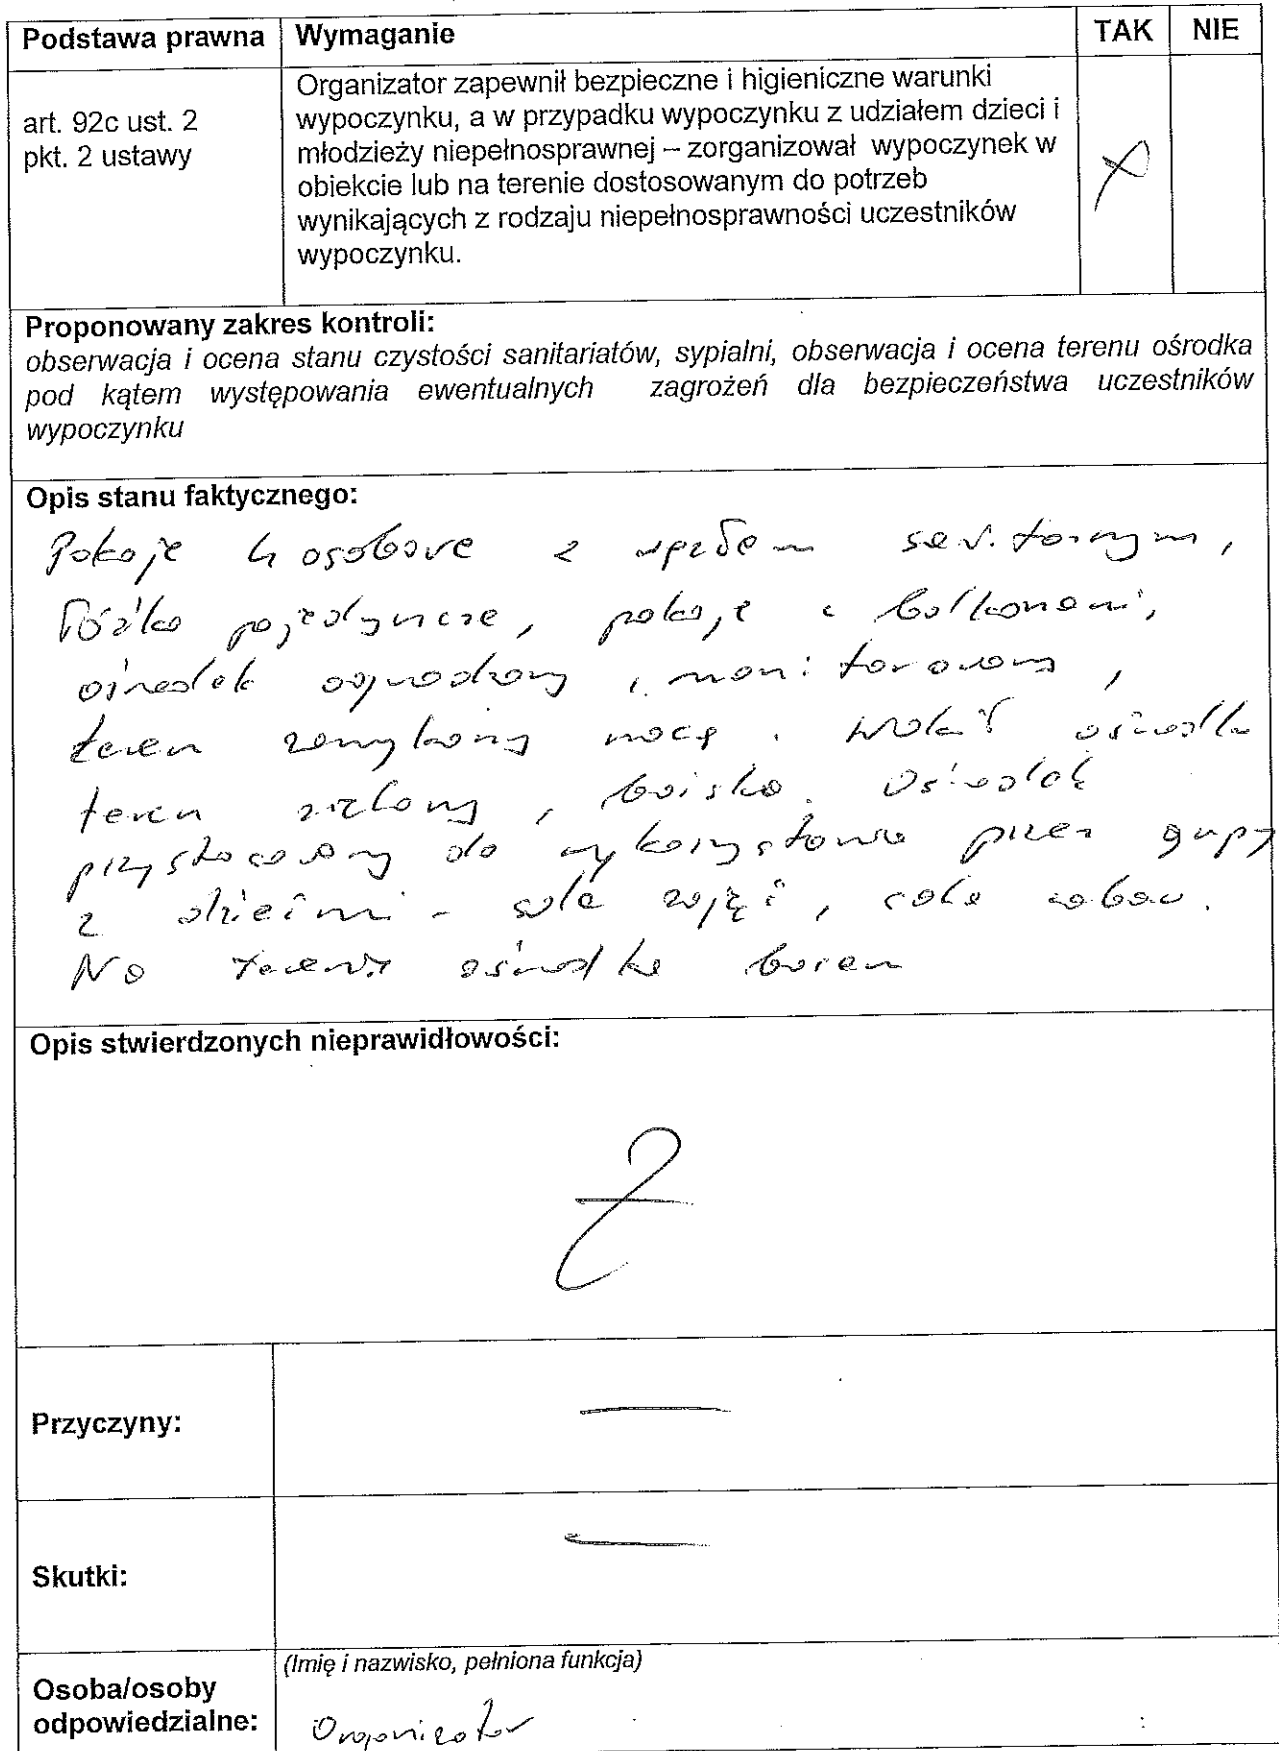 Podstawa prawna Wymaganie TAK NIE
art. 92c ust. 2
pkt. 2 ustawy
Organizator zapewnił bezpieczne i higieniczne warunki
wypoczynku, a w przypadku wypoczynku z udziałem dzieci i
młodzieży niepełnosprawnej – zorganizował wypoczynek w
obiekcie lub na terenie dostosowanym do potrzeb
wynikających z rodzaju niepełnosprawności uczestników
wypoczynku.
X
Proponowany zakres kontroli:
obserwacja i ocena stanu czystości sanitariatów, sypialni, obserwacja i ocena terenu ośrodka
pod kątem występowania ewentualnych zagrożeń dla bezpieczeństwa uczestników
wypoczynku
Opis stanu faktycznego:
Pokoje 4 osobowe z węzłem sanitarnym,
łóżka pojedyncze, pokoje z balkonami,
ośrodek ogrodzony i monitorowany,
teren zamykany nocą. Wokół ośrodka
teren zielony, boisko. Ośrodek
przystosowany do wykorzystania przez grupy
z dziećmi - sala zajęć, sala zabaw.
Na terenie ośrodka basen
Opis stwierdzonych nieprawidłowości:
Przyczyny: —
Skutki: —
Osoba/osoby
odpowiedzialne:
(Imię i nazwisko, pełniona funkcja)
Organizator